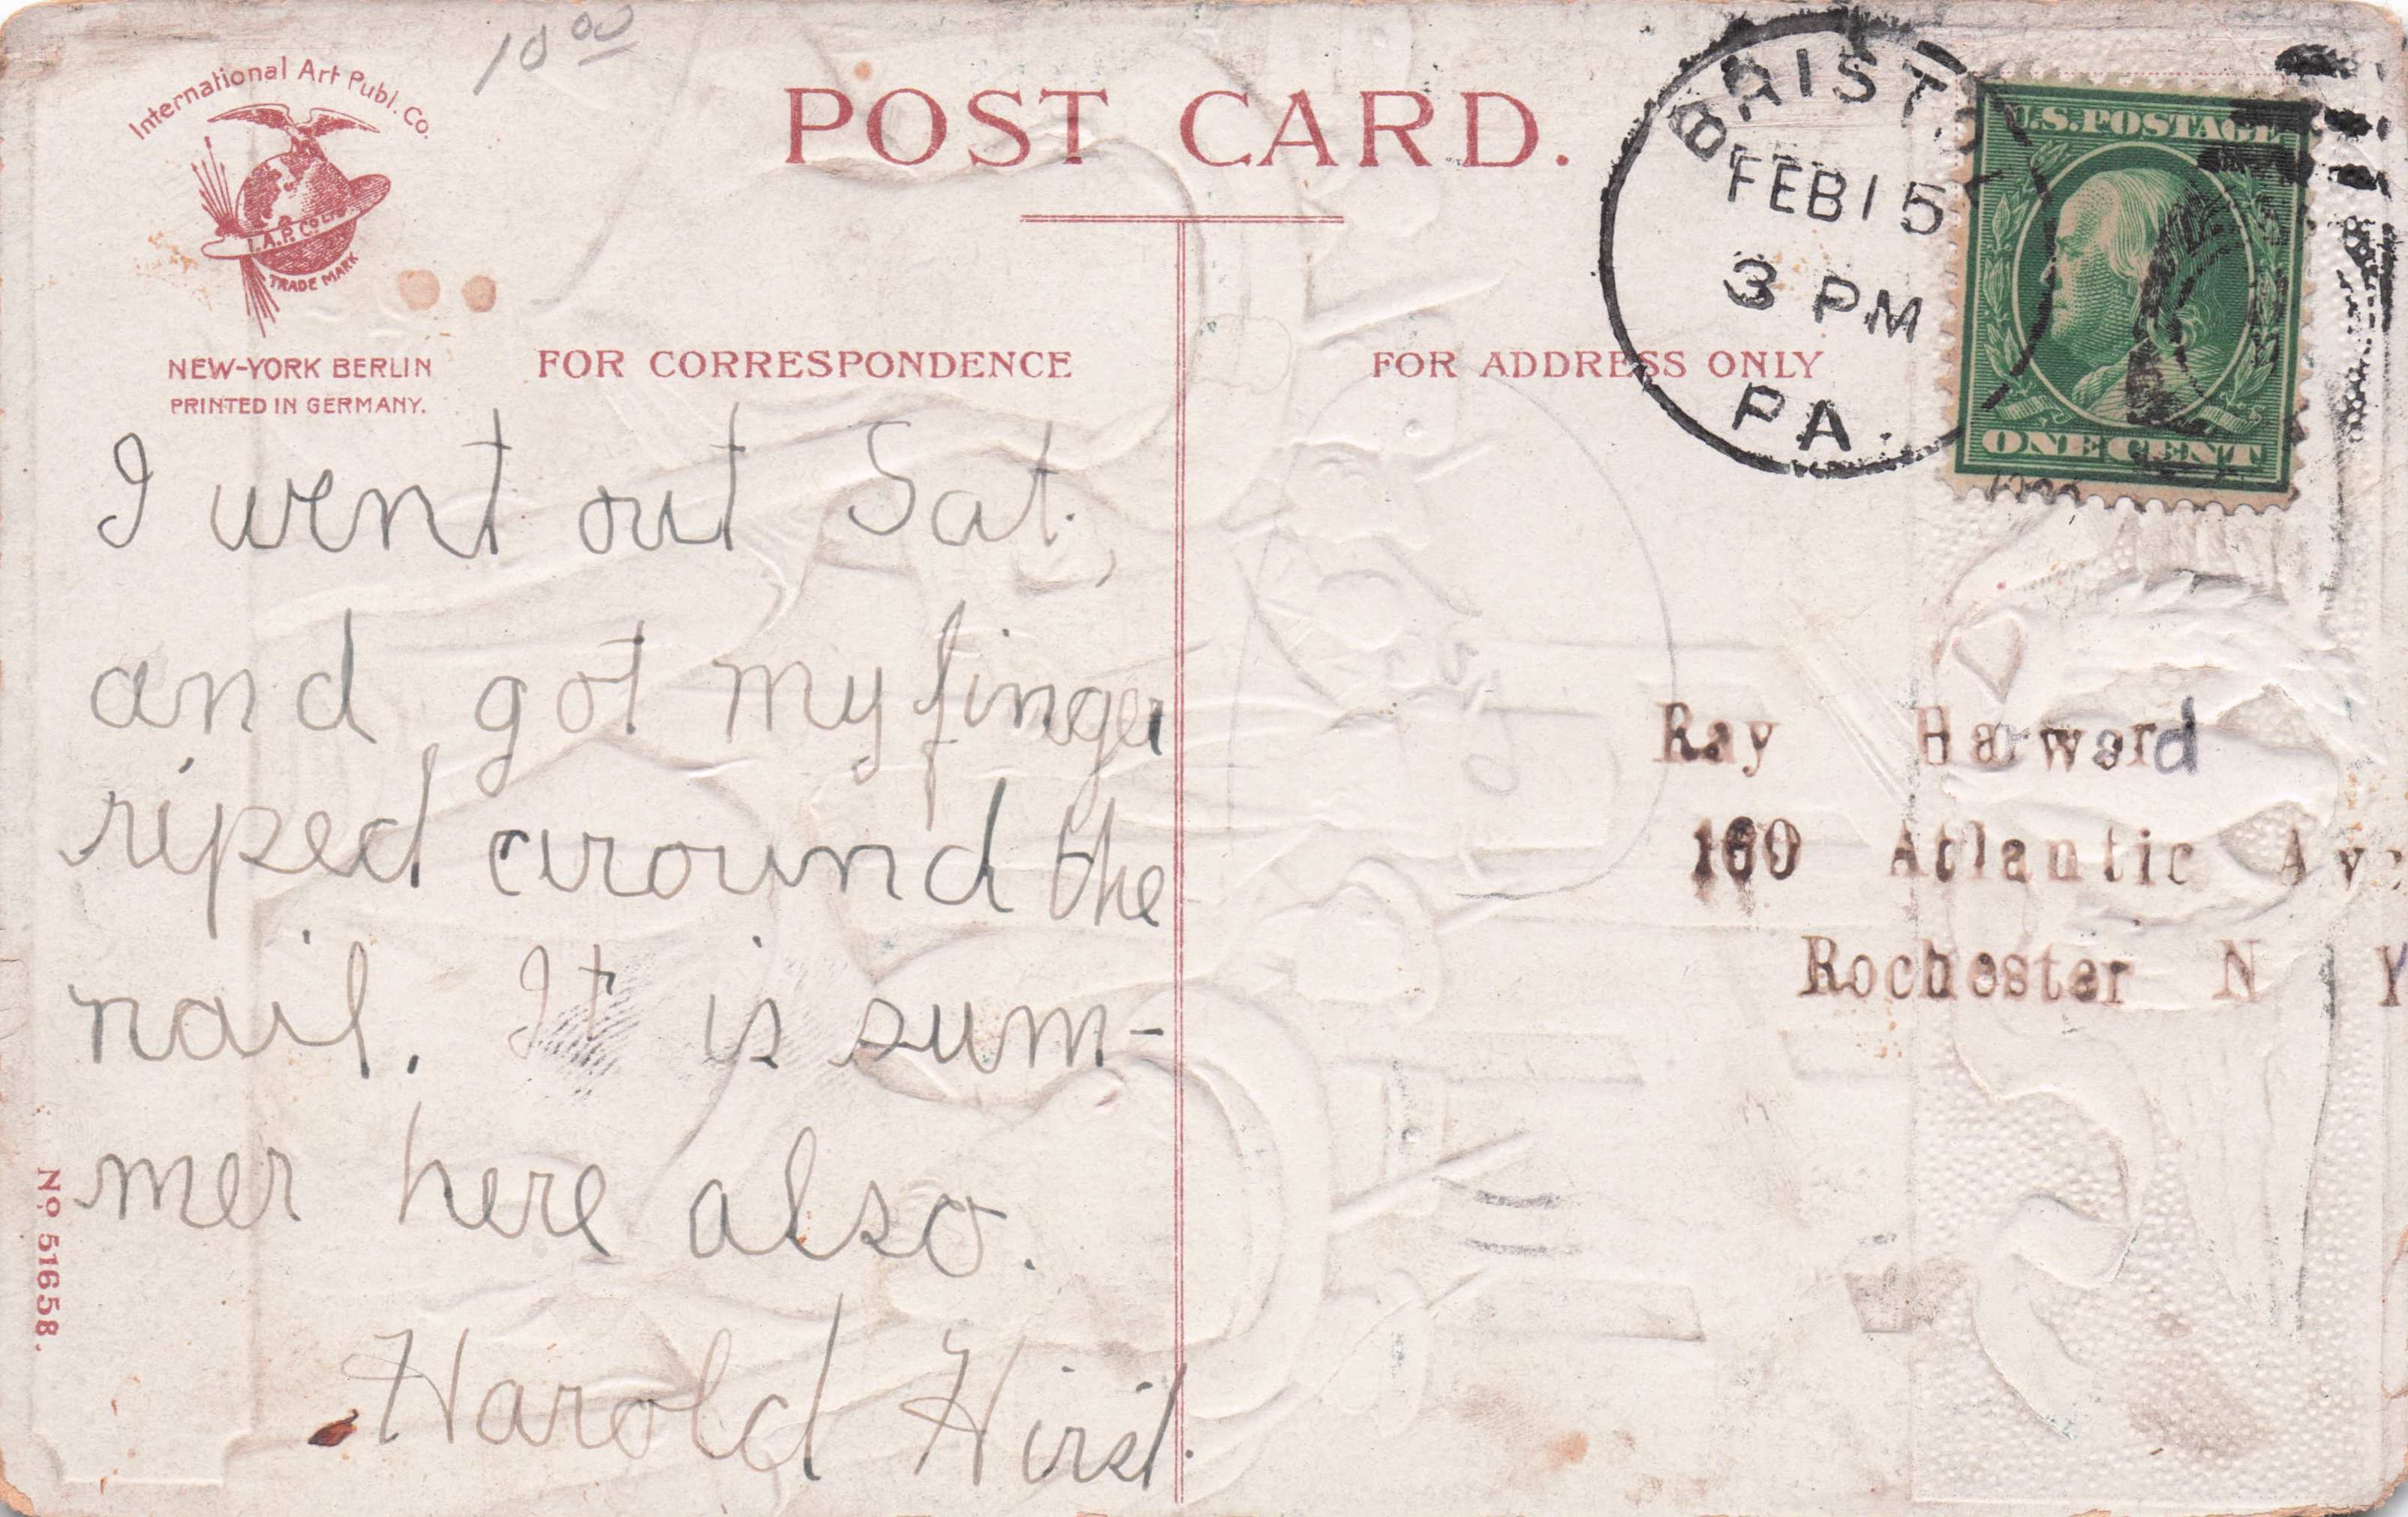 10 00
International Art Publ. Co.
I. A. P. Co Ltd
TRADE MARK
NEW-YORK BERLIN
PRINTED IN GERMANY.
POST CARD.
FOR CORRESPONDENCE
FOR ADDRESS ONLY
BRISTOL
FEB 15
3 PM
PA.
U.S. POSTAGE
ONE CENT
I went out Sat.
and got my finger
riped around the
nail. It is sum-
mer here also.
Harold Hirst.
Ray Harward
160 Atlantic Ave
Rochester N Y
No. 51658.